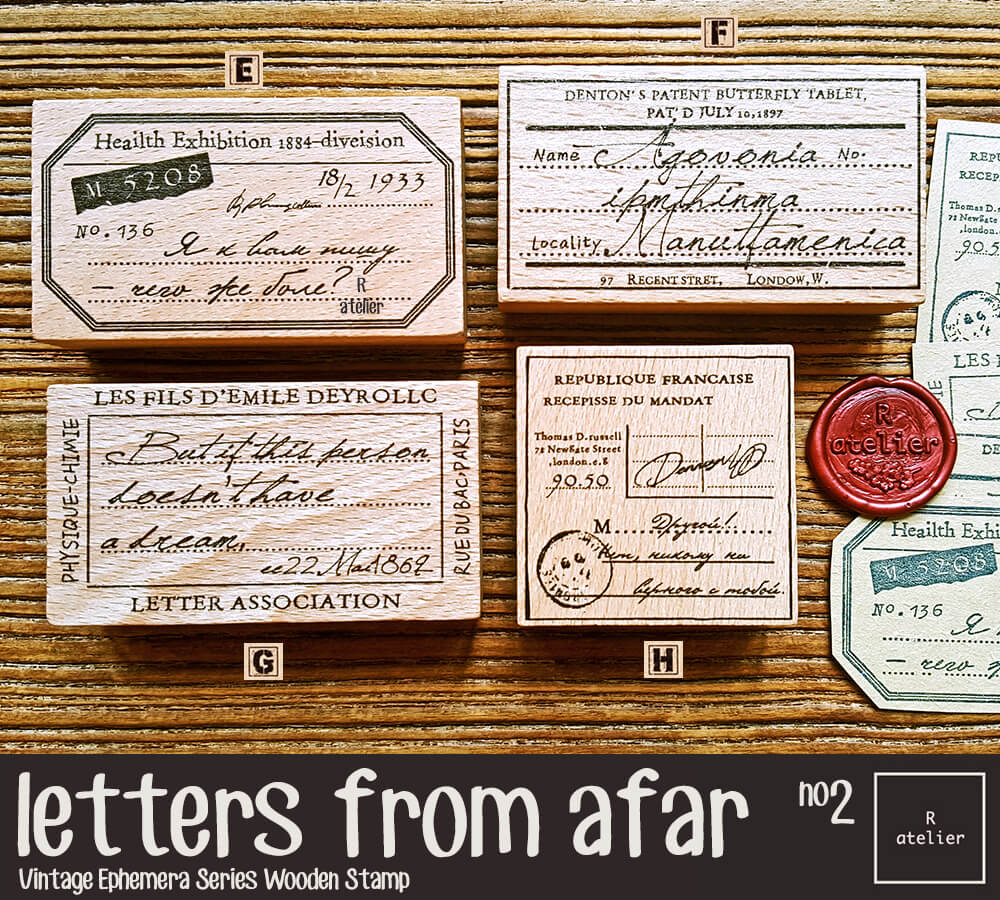 E
Heailth Exhibition 1884-diveision
M 5208
18/2 1933
No. 136
Я к вам пишу
— чего же боле?
R
atelier
F
DENTON'S PATENT BUTTERFLY TABLET,
PAT'D JULY 10,1897
Name Agovonia No.
ipmthinma
Locality Manuttamenica
97 REGENT STRET, LONDOW,W.
LES FILS D'EMILE DEYROLLC
PHYSIQUE-CHIMIE
But if this person
doesn't have
a dream,
ce22 Mad 1869
RUE DU BAC·PARIS
LETTER ASSOCIATION
G
REPUBLIQUE FRANCAISE
RECEPISSE DU MANDAT
Thomas D.russell
78 NewGate Street
,london.e.g
90.50
M Другой!
Нет, никому на
верного с тобой.
H
REPU
RECEP
Thomas D.r
78 NewGate
,london.
90.5
LES F
DE
R
atelier
Heailth Exhi
M 5208
No. 136
Я
— чего
letters from afar no2
Vintage Ephemera Series Wooden Stamp
R
atelier